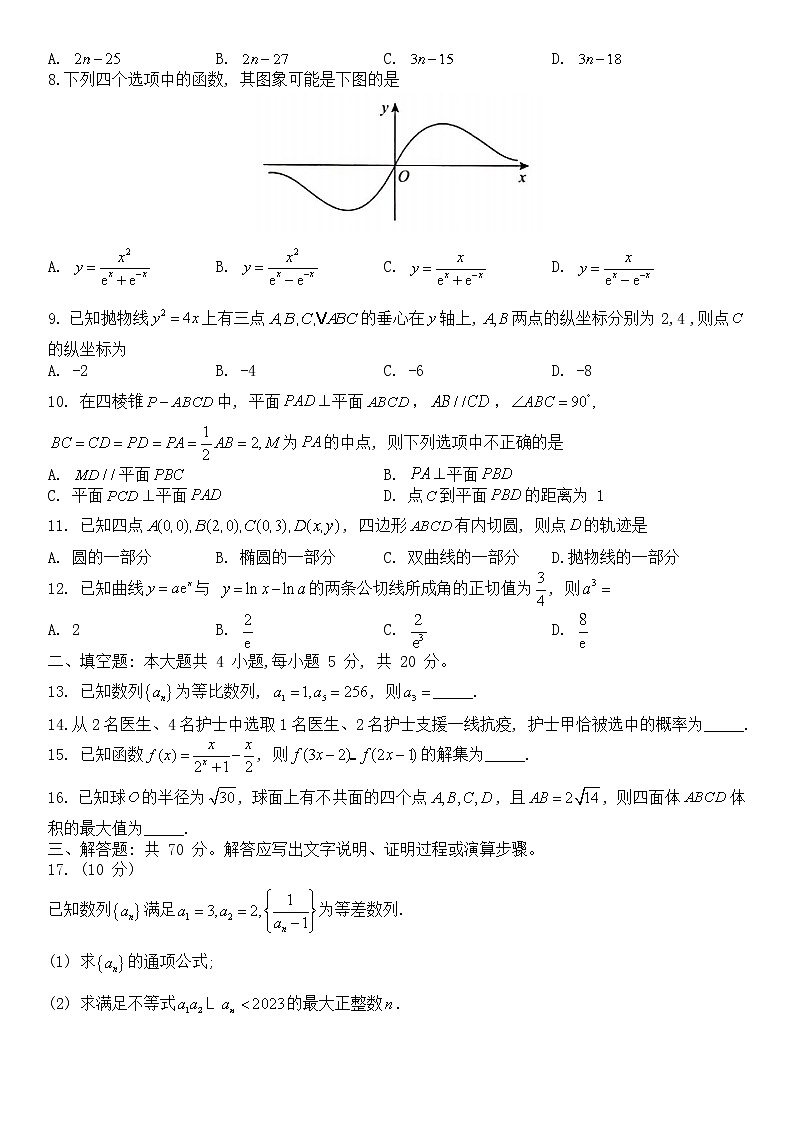 A. 2n−25 B. 2n−27 C. 3n−15 D. 3n−18
8.下列四个选项中的函数, 其图象可能是下图的是
y
O
x
A. y=x²/(eˣ+e⁻ˣ) B. y=x²/(eˣ−e⁻ˣ) C. y=x/(eˣ+e⁻ˣ) D. y=x/(eˣ−e⁻ˣ)
9. 已知抛物线y²=4x上有三点A,B,C,VABC的垂心在y轴上, A,B两点的纵坐标分别为 2,4 ,则点C
的纵坐标为
A. -2 B. -4 C. -6 D. -8
10. 在四棱锥P−ABCD中, 平面PAD⊥平面ABCD, AB//CD, ∠ABC=90°,
BC=CD=PD=PA=1/2AB=2,M为PA的中点, 则下列选项中不正确的是
A. MD//平面PBC B. PA⊥平面PBD
C. 平面PCD⊥平面PAD D. 点C到平面PBD的距离为 1
11. 已知四点A(0,0),B(2,0),C(0,3),D(x,y), 四边形ABCD有内切圆, 则点D的轨迹是
A. 圆的一部分 B. 椭圆的一部分 C. 双曲线的一部分 D.抛物线的一部分
12. 已知曲线y=aeˣ与 y=ln x−ln a的两条公切线所成角的正切值为3/4, 则a³=
A. 2 B. 2/e C. 2/e³ D. 8/e
二、填空题: 本大题共 4 小题,每小题 5 分, 共 20 分。
13. 已知数列{aₙ}为等比数列, a₁=1,a₅=256, 则a₃=_____.
14.从2名医生、4名护士中选取1名医生、2名护士支援一线抗疫, 护士甲恰被选中的概率为_____.
15. 已知函数f(x)=x/(2ˣ+1)−x/2, 则f(3x−2)_ f(2x−1)的解集为_____.
16. 已知球O的半径为√30, 球面上有不共面的四个点A,B,C,D, 且AB=2√14, 则四面体ABCD体
积的最大值为_____.
三、解答题: 共 70 分。解答应写出文字说明、证明过程或演算步骤。
17. (10 分)
已知数列{aₙ}满足a₁=3,a₂=2,{1/(aₙ−1)}为等差数列.
(1) 求{aₙ}的通项公式;
(2) 求满足不等式a₁a₂L aₙ<2023的最大正整数n.